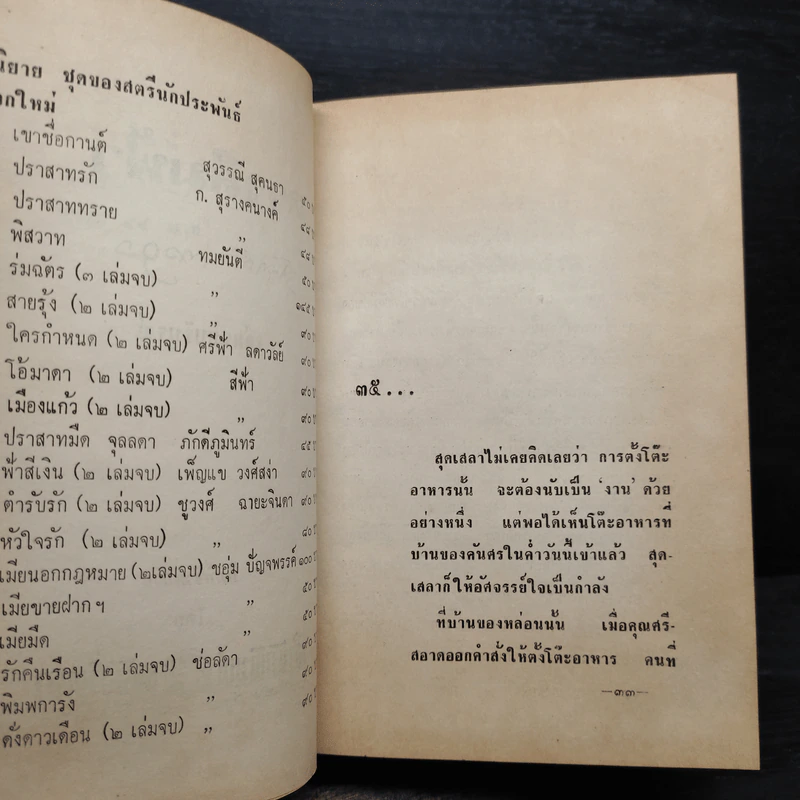 นิยาย ชุดของสตรีนักประพันธ์
อกใหม่
เขาชื่อกานต์ สุวรรณี สุคนธา ๕๐
ปราสาทรัก ก. สุรางคนางค์ ๔๕
ปราสาททราย ” ๔๕
พิสวาท ทมยันตี ๕๐
ร่มฉัตร (๓ เล่มจบ) ” ๑๔๕
สายรุ้ง (๒ เล่มจบ) ” ๙๐
ใครกำหนด (๒ เล่มจบ) ศรีฟ้า ลดาวัลย์ ๙๐
โอ้มาดา (๒ เล่มจบ) สีฟ้า ๙๐
เมืองแก้ว (๒ เล่มจบ) ” ๙๐
ปราสาทมืด จุลลดา ภักดีภูมินทร์ ๔๕
ฟ้าสีเงิน (๒ เล่มจบ) เพ็ญแข วงศ์สง่า ๙๐
ตำรับรัก (๒ เล่มจบ) ชูวงศ์ ฉายะจินดา ๙๐
หัวใจรัก (๒ เล่มจบ) ” ๘๐
เมียนอกกฎหมาย (๒เล่มจบ) ชอุ่ม ปัญจพรรค์ ๑๐๐
เมียขายฝาก ฯ ” ๕๐
เมียมืด ” ๕๐
รักคืนเรือน (๒ เล่มจบ) ช่อลัดา ๙๐
พิมพการัง ” ๙๐
ดั่งดาวเดือน (๒ เล่มจบ) ”
๓๕...
สุดเสลาไม่เคยคิดเลยว่า การตั้งโต๊ะ
อาหารนั้น จะต้องนับเป็น ‘งาน’ ด้วย
อย่างหนึ่ง แต่พอได้เห็นโต๊ะอาหารที่
บ้านของคันศรในค่ำวันนี้เข้าแล้ว สุด-
เสลาก็ให้อัศจรรย์ใจเป็นกำลัง
ที่บ้านของหล่อนนั้น เมื่อคุณศรี-
สอาดออกคำสั่งให้ตั้งโต๊ะอาหาร คนที่
—๓๓—